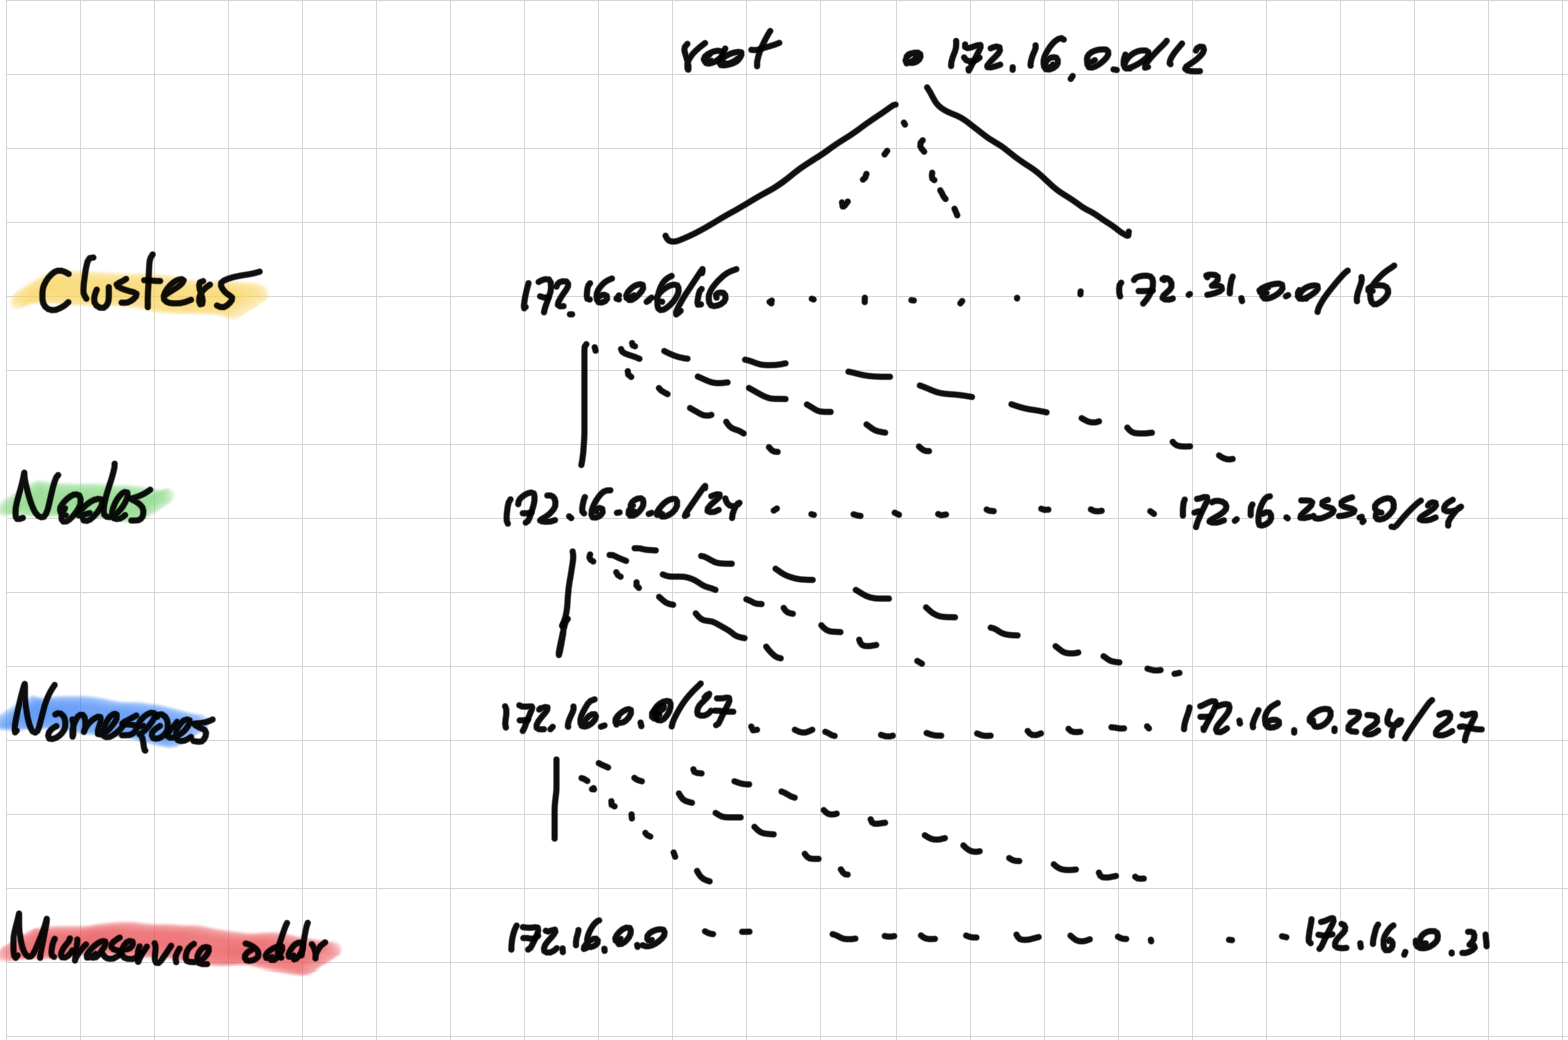 root 172.16.0.0/12
Clusters 172.16.0.0/16 172.31.0.0/16
Nodes 172.16.0.0/24 172.16.255.0/24
Namespaces 172.16.0.0/27 172.16.0.224/27
Microservice addr 172.16.0.0 172.16.0.31